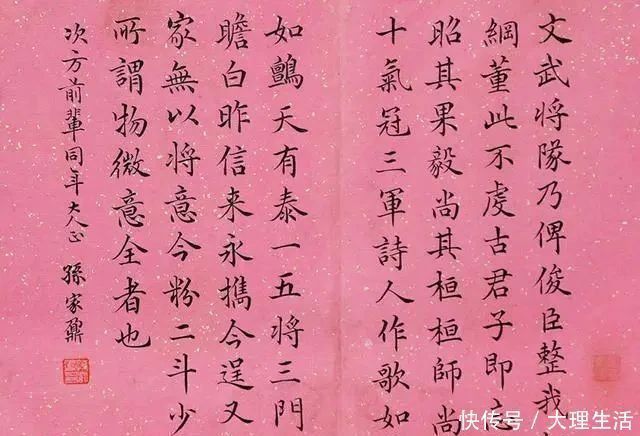 文武将隊乃俾俊臣整我
綱董此不虔古君子即
昭其果毅尚其桓桓師尚
十氣冠三軍詩人作歌如
如鸇天有泰一五将三門
瞻白昨信来永攜今逞又
家無以将意今粉二斗少
所謂物微意全者也
次方前輩同年大人正 孫家鼐
快传号 / 大理生活